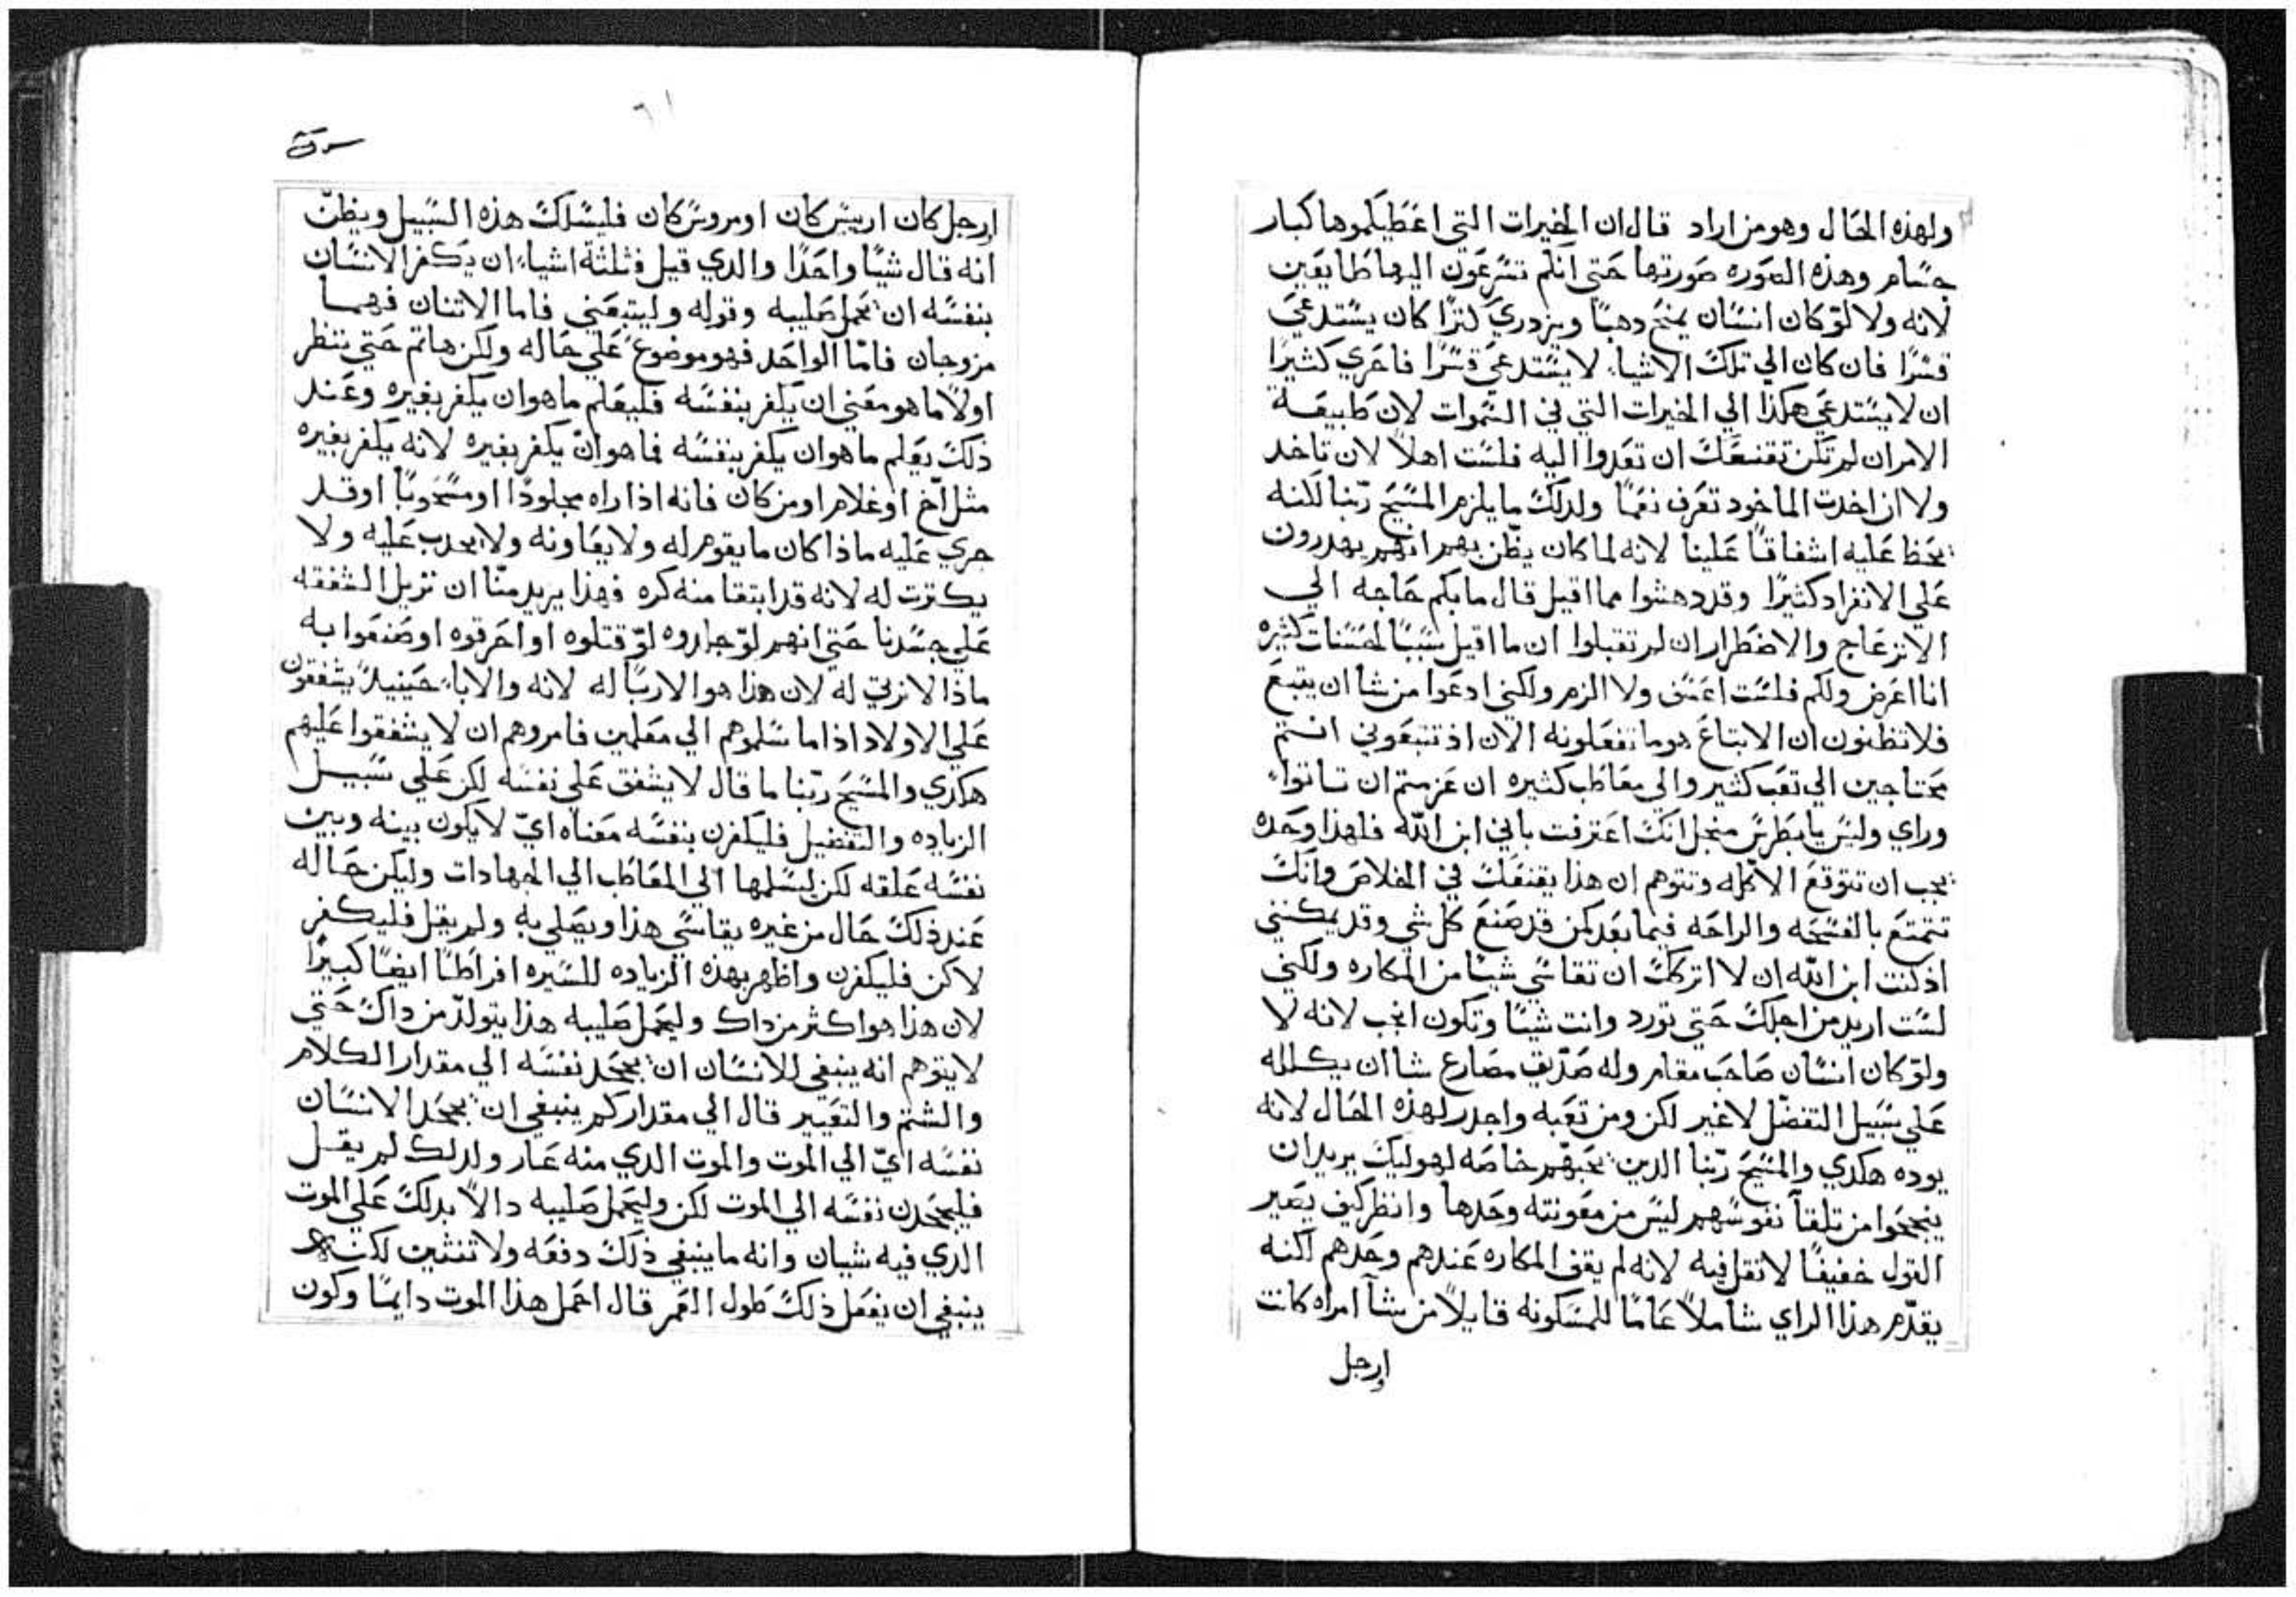 ولهذه الحال وهو من اراد قال ان الخيرات التي اعطيكموها كبار
جسام وهذه الصوره صورتها حتي انكم تسرعون اليها طايعين
لانه ولا لو كان انسان يمنح دهبًا ويزدري كنزًا كان يستدعي
قسرًا فان كان الي تلك الاشياء لا يستدعي قسرًا فاحري كثيرًا
ان لا يستدعي هكذا الي الخيرات التي في السموات لان طبيعة
الامر ان لم تكن تقنعك ان تعدوا اليه فلست اهلاً لان تاخد
ولا ان اخدت الماخود تعرف نعمًا ولدلك ما يلزم المسيح ربنا لكنه
يحظ عليه اشفاقًا علينا لانه لما كان يظن بهم انهم يهدرون
علي الانفراد كثيرًا وقد دهشوا مما اقيل قال ما بكم حاجه الي
الانزعاج والاضطرار ان لم تقبلوا ان ما اقيل سببًا لحسنات كثيره
انا اعرض ولكم فلست اغتنى ولا الزم ولكني ادعوا من شا ان يتبع
فلا تظنون ان الابتاع هو ما تفعلونه الان اذ تتبعوني انتم
محتاجين الي تعب كثير والي معاطب كثيره ان عزمتم ان تاتوا
وراي وليس يا بطرس منجل انك اعترفت باني ابن الله فلهذا وحده
يجب ان تتوقع الاكله وتتوهم ان هذا يقنعك في الخلاص وانك
تتمتع بالفسحه والراحه فيما بعد كمن قد صنع كل شي وقد يمكنني
اذ كنت ابن الله ان لا اتركك ان تقاسي شيًا من المكاره ولكني
لست اريد من اجلك حتي تورد وانت شيًا وتكون انجب لانه لا
ولو كان انسان صاحب مقام وله صديق مصارع شا ان يكلله
علي سبيل التفضل لا غير لكن ومن تعبه واجدر لهذه الحال لانه
يوده هكدي والمسيح ربنا الدين يحبهم خاصه لهوليك يريد ان
ينجحوا من تلقآ نفوسهم ليس من معونته وحدها وانظر كيف يصير
القول خفيفًا لا ثقل فيه لانه لم يقف المكاره عندهم وحدهم لكنه
يقدم هذا الراي شاملاً عامًا للمسكونه قايلاً من شآ امراه كانت
ارجل
٦١
ارجل كان اريس كان اومروس كان فليسلك هذه السبيل ويظن
انه قال شيًا واحدًا والدي قيل فثلثة اشياء ان يكفر الانسان
بنفسه ان يحمل صليبه وقوله وليتبعني فاما الاتنان فهما
مزوجان فامّا الواحد فهو موضوع علي حاله ولكن هاتم حتي ننظر
اولاً ما هو معني ان يكفر بنفسه فليعلم ما هو ان يكفر بغيره وعند
ذلك يعلم ما هو ان يكفر بنفسه فما هو ان يكفر بغيره لانه يكفر بغيره
مثل اخ او غلام او من كان فانه اذا راه مجلودًا او مسحوبًا او قد
جري عليه ماذا كان ما يقوم له ولا يعاونه ولا يحدب عليه ولا
يكترت له لانه قد ابتقا منه كره فهذا يريد منّا ان نزيل الشفقه
علي جسدنا حتي انهم لو جلدوه لو قتلوه او احرقوه او صنعوا به
ماذا لا نرثي له لان هذا هو الارثا له لانه والابا حينيدً يشفقون
علي الاولاد اذا ما سلموهم الي معلمين فامروهم ان لا يشفقوا عليهم
هكدي والمسيح ربنا ما قال لا يشفق علي نفسه لكن علي سبيل
الزياده والتفضيل فليكفرن بنفسه معناه ايّ لا يكون بينه وبين
نفسه علقه لكن ليسلمها الي المعاطب الي الجهادات وليكن حاله
عند ذلك حال من غيره يقاسي هذا ويصلي به ولم يقل فليكفر
لاكن فليكفرن واظهر بهذه الزياده للسيره افراطًا ايضًا كبيرًا
لان هذا هو اكثر من داك وليحمل صليبه هذا يتولد من داك حتي
لا يتوهم انه ينبغي للانسان ان يجحد نفسه الي مقدار الكلام
والشتم والتعيير قال الي مقدار كم ينبغي ان يجحد الانسان
نفسه ايّ الي الموت والموت الدي منه عار ولدلك لم يقل
فليجحدن نفسه الي الموت لكن وليحمل صليبه دالاً بدلك علي الموت
الدي فيه شيان وانه ما ينبغي ذلك دفعه ولا تنثين لكن
ينبغي ان نفعل ذلك طول العمر قال احمل هذا الموت دايمًا وكون